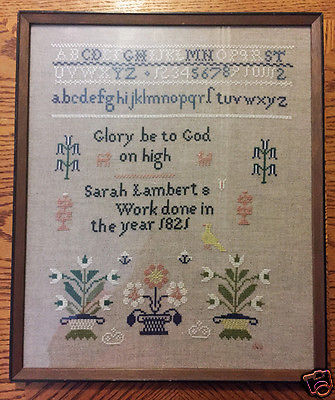 ABCDEFGHIJKLMNOPQRST
UVWXYZ 12345678
abcdefghijklmnopqrſtuvwxyz
Glory be to God
on high
Sarah Lambert s
Work done in
the year 1821